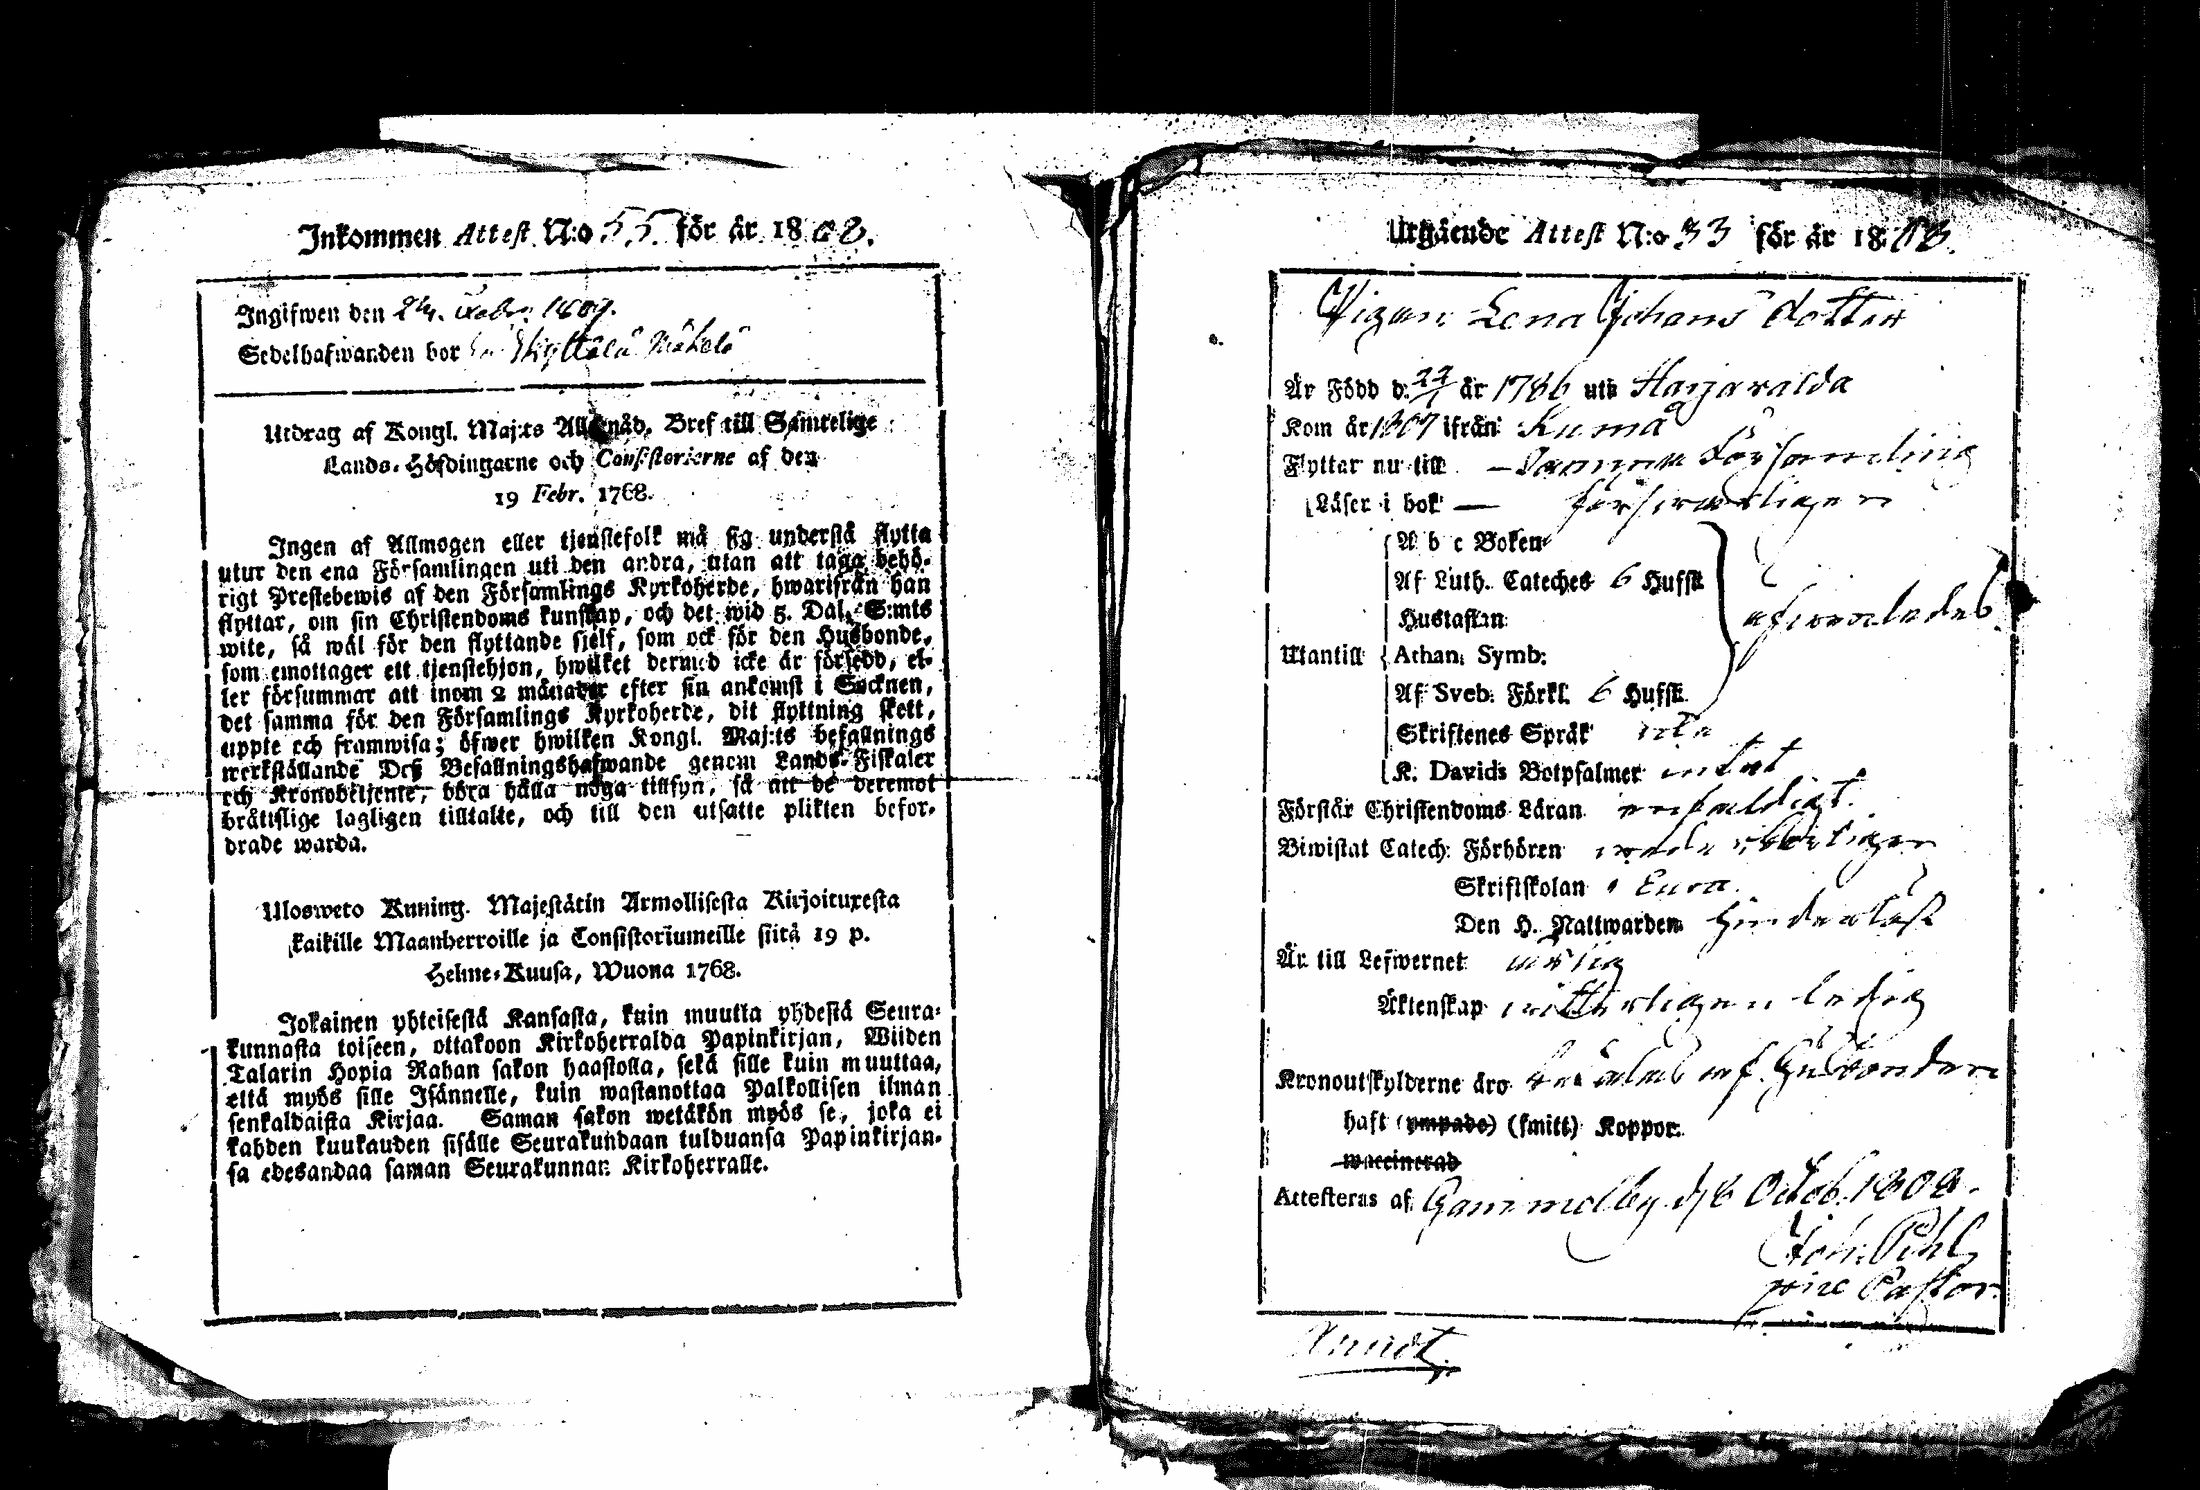 Inkommen Attest N:o 55. för år 1808.
Ingifwen den 24. 1809.
Sedelhafwanden bor
Utdrag af Kongl. Maj:ts Allernåd. Bref till Samtelige
Lands-Höfdingarne och Consistorierne af den
19 Febr. 1768.
Ingen af Allmogen eller tjenstefolk må sig understå flytta
utur den ena Församlingen uti den andra, utan att taga behö-
rigt Prestebewis af den Församlings Kyrkoherde, hwarifrån han
flyttar, om sin Christendoms kunskap, och det wid 5. Dal. S:mts
wite, så wäl för den flyttande sjelf, som ock för den Husbonde,
som emottager ett tjenstehjon, hwilket dermed icke är försedd, el-
ler försummar att inom 2 månader efter sin ankomst i Socknen,
det samma för den Församlings Kyrkoherde, dit flyttning skett,
uppte och framwisa; öfwer hwilken Kongl. Maj:ts befallnings
werkställande Deß Befallningshafwande genom Lands-Fiskaler
och Kronobetjente, böra hålla noga tillsyn, så att de deremot
bråttslige lagligen tilltalte, och till den utsatte plikten befor-
drade warda.
Ulosweto Kuning. Majestätin Armollisesta Kirjoituxesta
kaikille Maanherroille ja Consistoriumeille siitä 19 p.
Helme-Kuusa, Wuona 1768.
Jokainen yhteisestä Kansasta, kuin muutta yhdestä Seura-
kunnasta toiseen, ottakoon Kirkoherralda Papinkirjan, Wiiden
Talarin Hopia Rahan sakon haastolla, sekä sille kuin muuttaa,
että myös sille Isännelle, kuin wastanottaa Palkollisen ilman
senkaldaista Kirjaa. Saman sakon wetäkön myös se, joka ei
kahden kuukauden sisälle Seurakundaan tulduansa Papinkirjan-
sa edesandaa saman Seurakunnan Kirkoherralle.
Utgående Attest N:o 33 för år 18
Pigan Lena Johans dotter
Är Född d. 22/1 år 1786 uti Harjavalda
Kom år 1807 ifrån Kumå
Flyttar nu till Församling
Läser i bok — försvarligen
A b c Boken
Af Luth. Cateches 6 Hufst.
Hustaflan
Utantill Athan. Symb.
Af Sveb. Förkl. 6 Hufst.
Skriftenes Språk
K. Davids Botpsalmer intet
Förstår Christendoms Läran enfaldigt.
Biwistat Catech. Förhören
Skriftskolan i Eura
Den H. Nattwarden
Är till Lefwernet
Äktenskap ledig
Kronoutskylderne äro af Husbonden
haft (ympade) (smitt) Koppor.
waccinerad
Attesteras af Gammelby d. 8 Octob. 1808.
Joh: Pihl
vice Pastor.